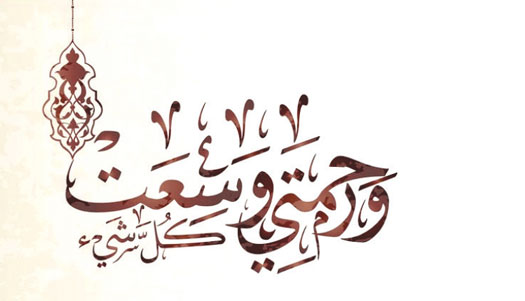 وَرَحْمَتِي وَسِعَتْ
كُلَّ شَيْء